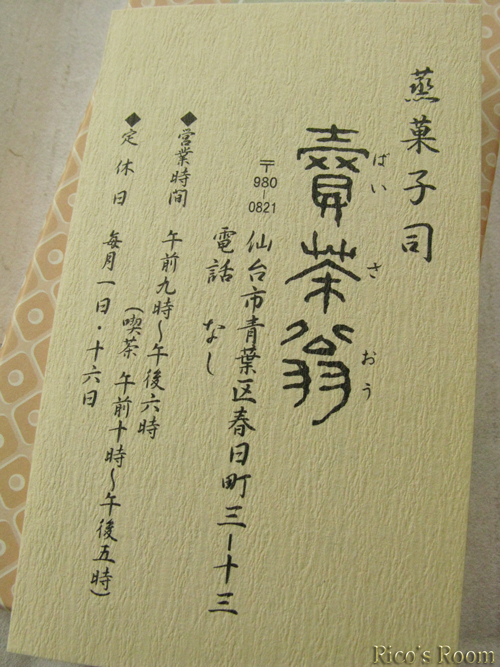 蒸菓子司
賣茶翁
ばいさおう
〒980-0821
仙台市青葉区春日町三ー十三
電話 なし
◆営業時間 午前九時〜午後六時
(喫茶 午前十時〜午後五時)
◆定休日 毎月一日・十六日
Rico's Room